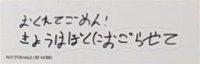 おくれてごめん!
きょうはぼくにおごらせて
NOT FOR SALE / BP #4382D